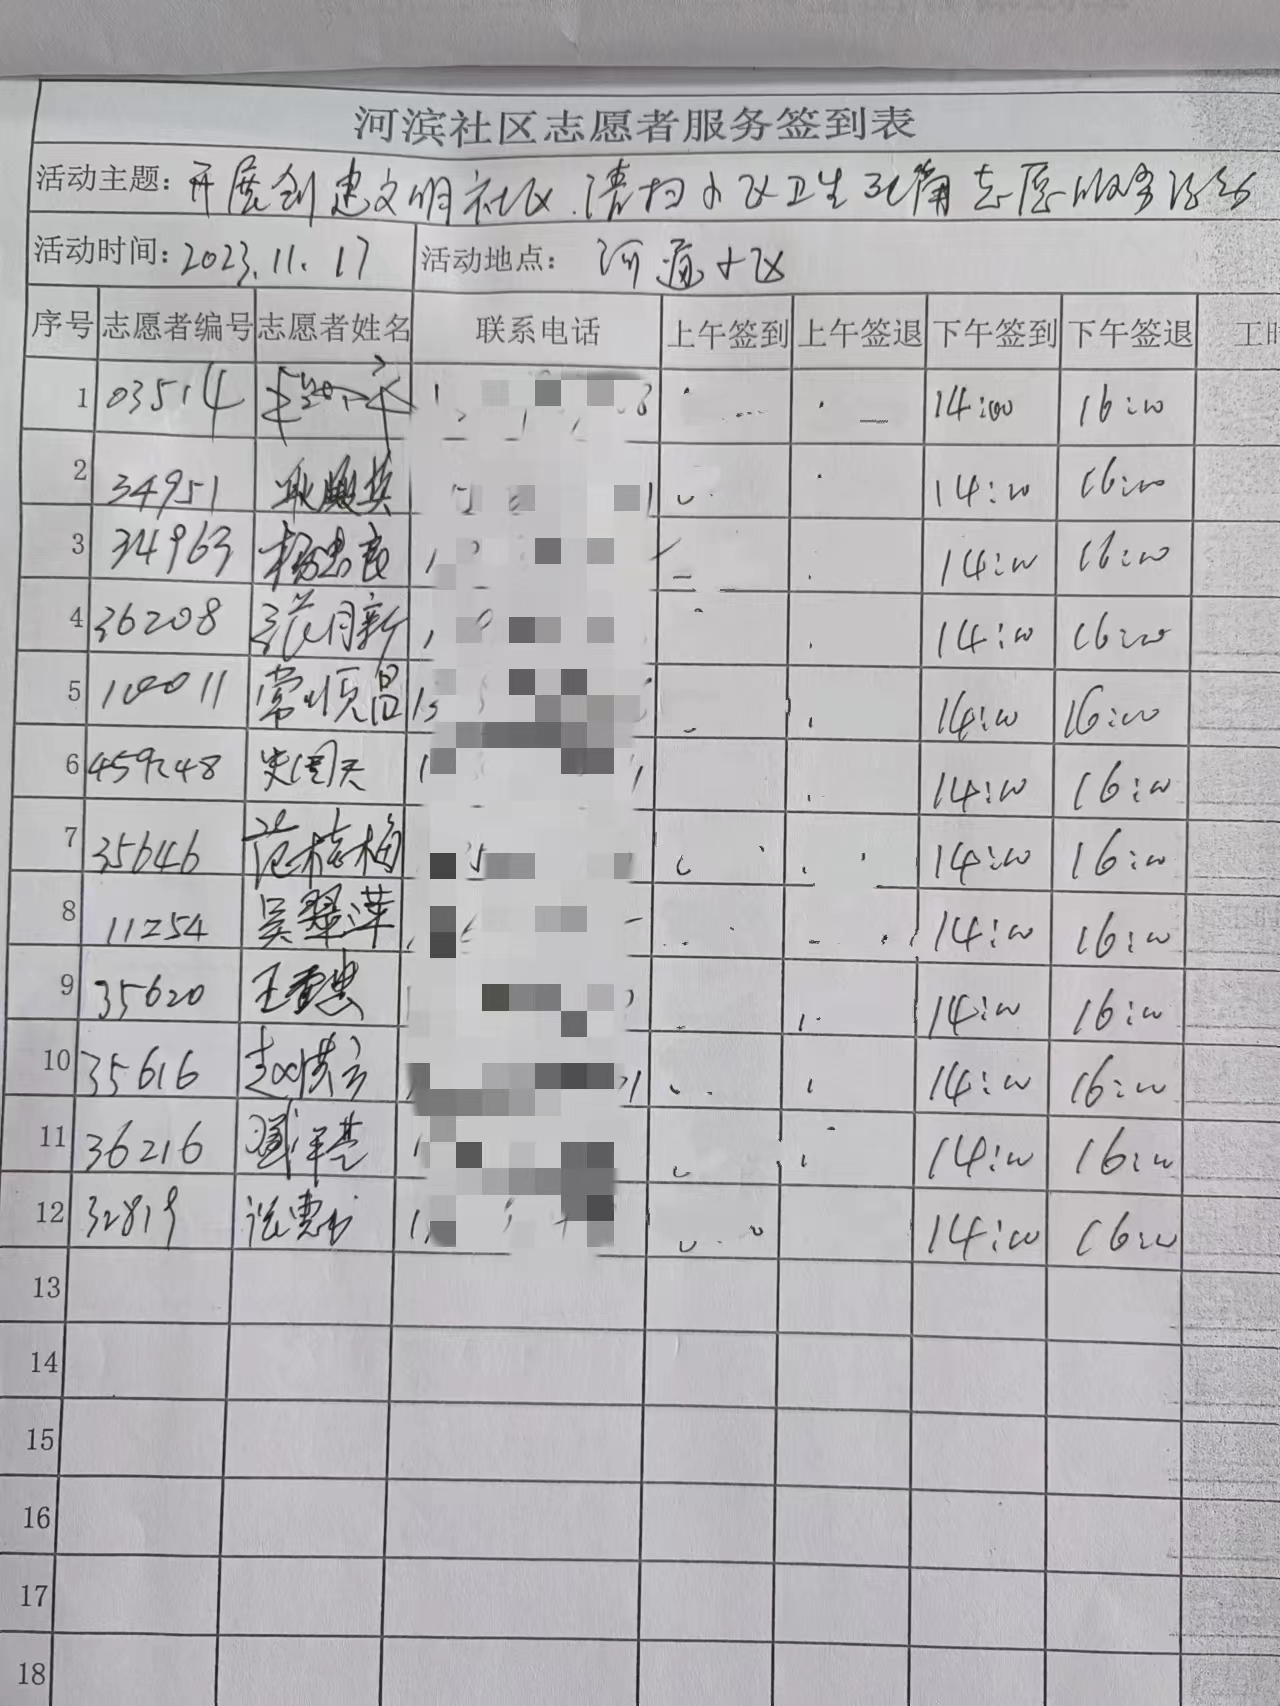 河滨社区志愿者服务签到表
活动主题：开展创建文明社区.清扫小区卫生死角志愿服务活动
活动时间：2023.11.17 活动地点：河 小区
序号 志愿者编号 志愿者姓名 联系电话 上午签到 上午签退 下午签到 下午签退
1 03514 14:00 16:00
2 34951 14:00 16:00
3 34963 杨忠良 14:00 16:00
4 36208 范月新 14:00 16:00
5 常顺昌 14:00 16:00
6 459248 史国天 14:00 16:00
7 35646 范桂梅 14:00 16:00
8 11254 吴翠萍 14:00 16:00
9 35620 王 忠 14:00 16:00
10 35616 赵 14:00 16:00
11 36216 14:00 16:00
12 32819 14:00 16:00
13
14
15
16
17
18